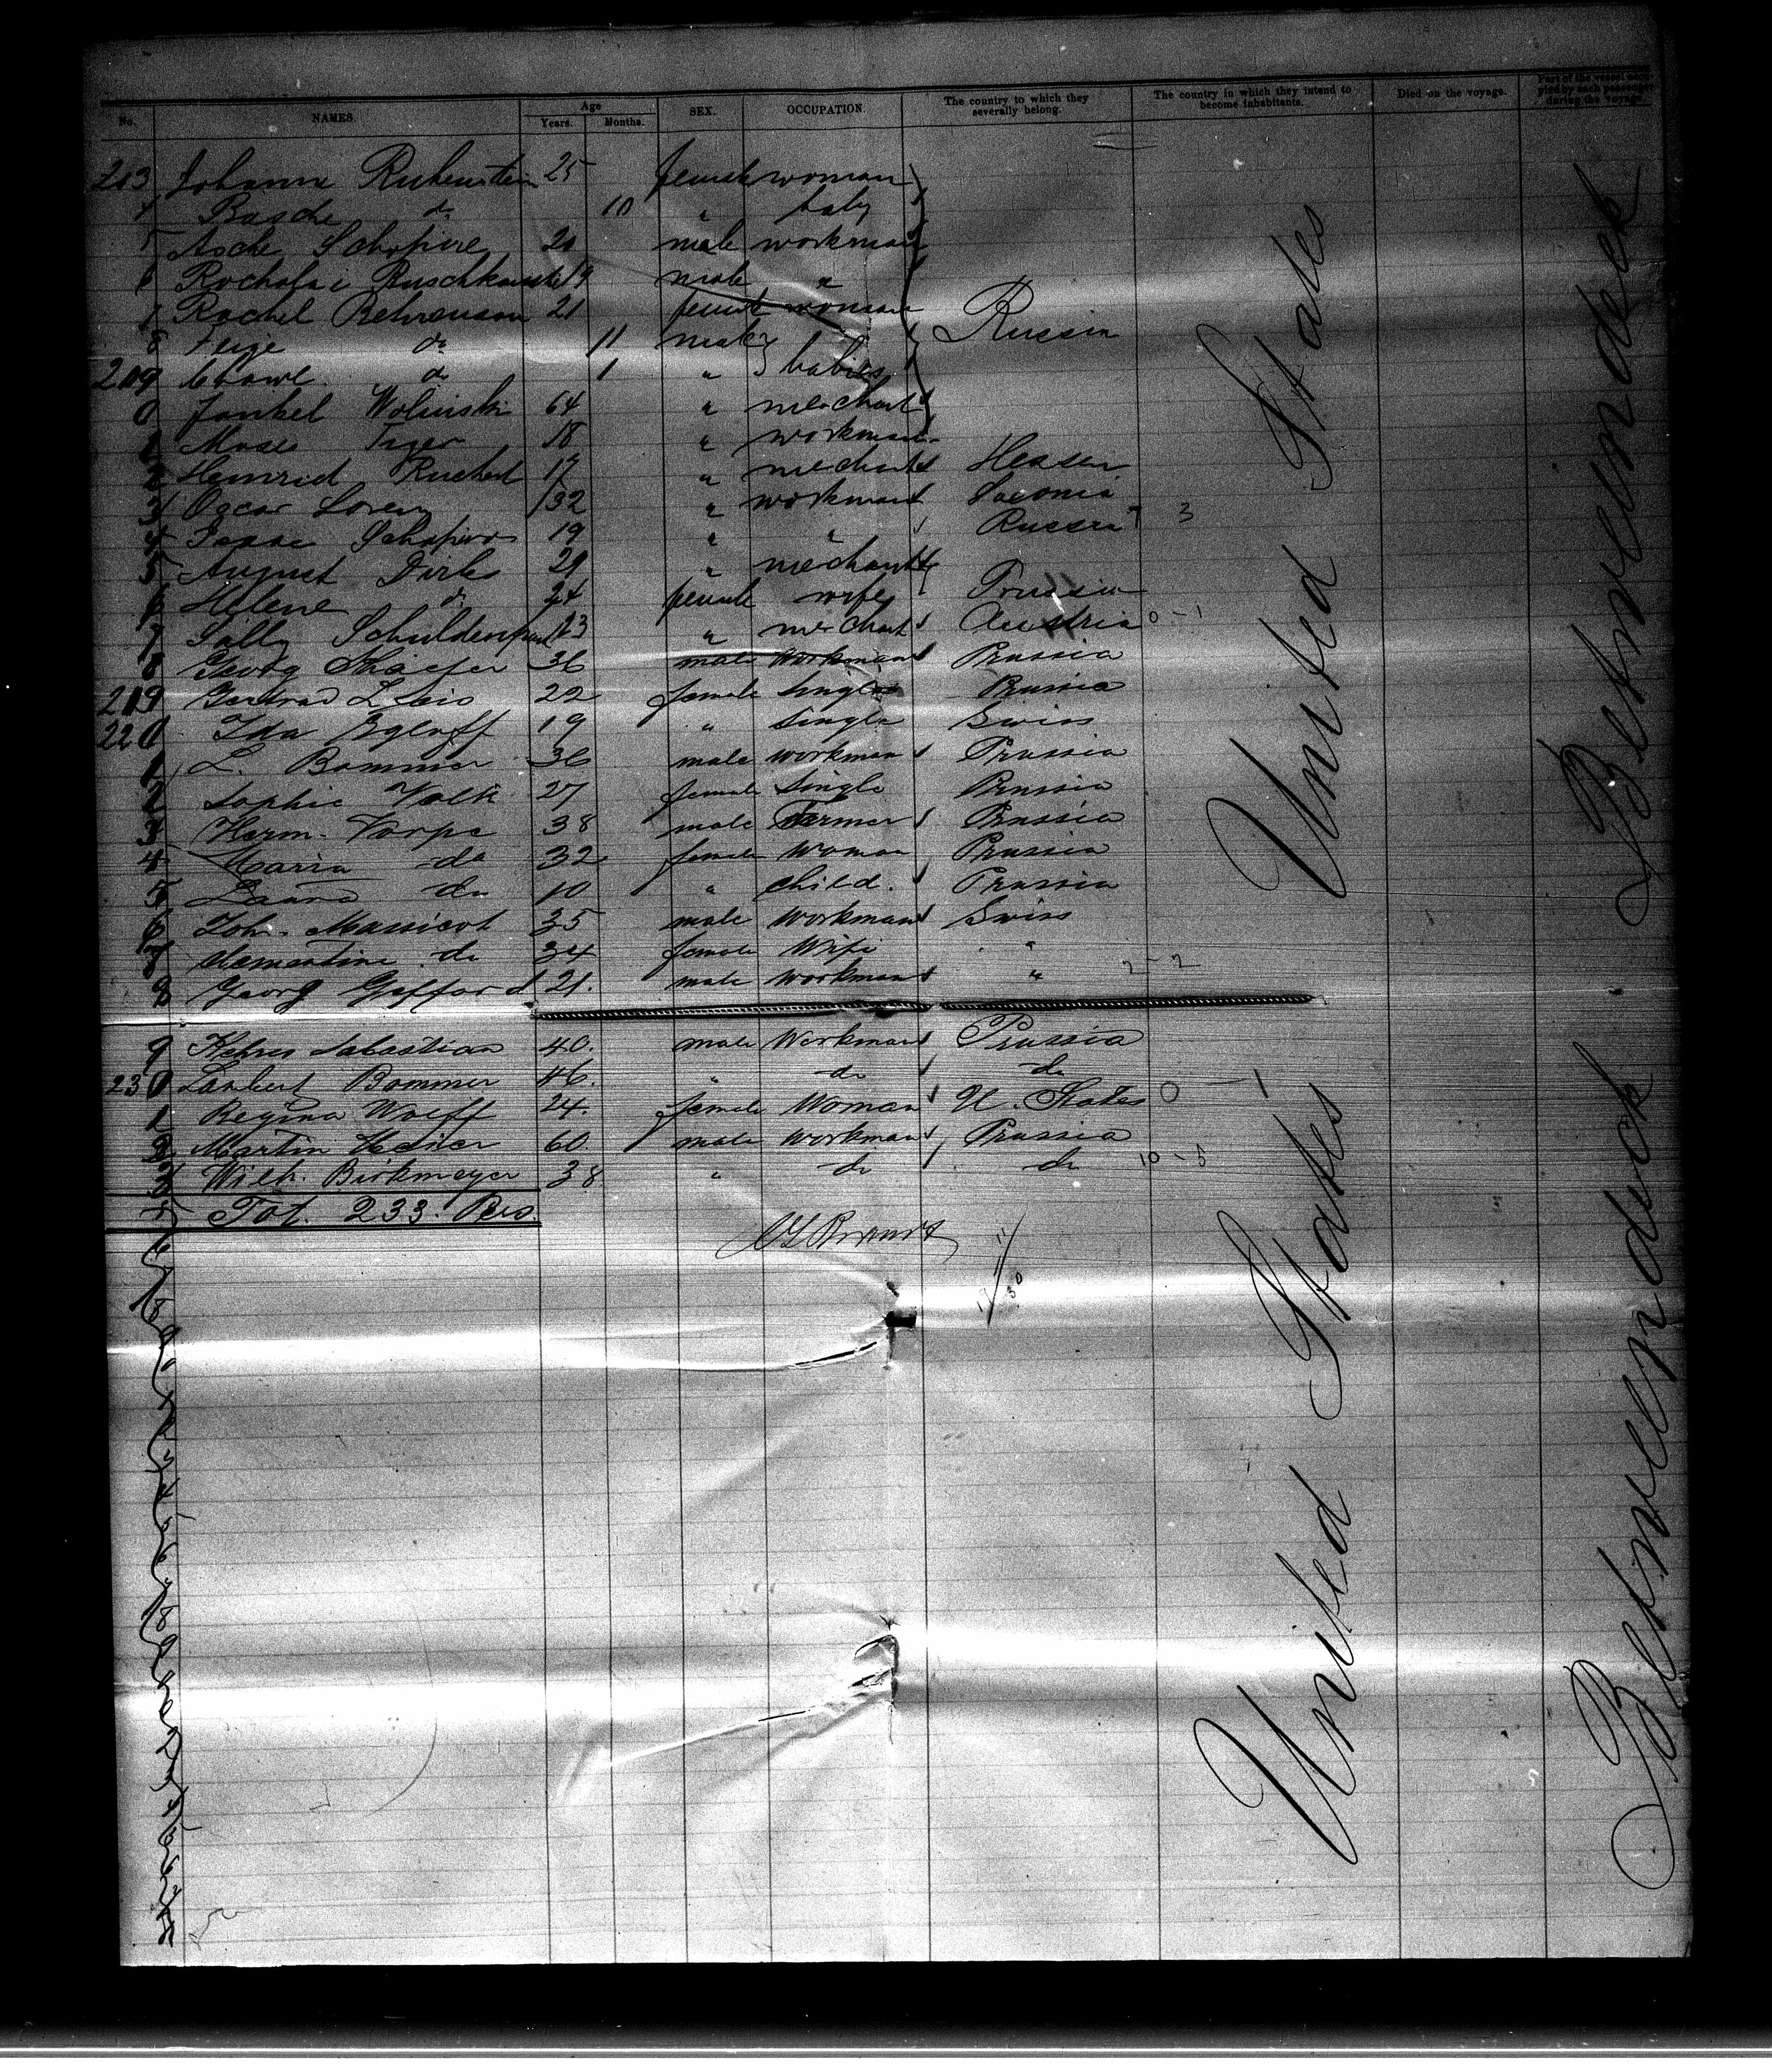 No. NAMES. Age Years. Months. SEX. OCCUPATION. The country to which they severally belong. The country in which they intend to become inhabitants. Died on the voyage. Part of the vessel occupied by each passenger during the voyage.
213 Johanna Rubenstein 25 female woman
4 Basche do 10 " baby
5 Asche Schapire 20 male workman
6 Ruschkowski 19 male "
7 Rachel Behrenson 21 female woman Russia
8 Feige do 11 male } babies
209 do 1 "
0 Jankel Wolinski 64 " merchant
1 Moses Tiger 18 " workman
2 Heinrich Ruckert 17 " merchant Hessen
3 Oscar Lorenz 32 " workman Saxonia
4 Isaac Schapiro 19 " " Russia 3
5 August Dirks 29 " merchant
6 Helene do 24 female wife Prussia
7 Sally 23 " merchant Austria 0-1
8 Georg Shaefer 36 male workman Prussia
219 Gertrud Leis 22 female Single Prussia
220 Ida Egloff 19 " Single Swiss
1 L. Bommer 36 male workman Prussia
2 Sophie Volk 27 female Single Prussia
3 Herm. Varpe 38 male Farmer Prussia
4 Maria do 32 female Woman Prussia
5 Laura do 10 " child. Prussia
6 Joh. Massicot 35 male Workman Swiss
7 Clementine do 34 female Wife "
8 Georg Gaffard 21. male workman " 2-2
9 Kehres Sabastian 40. male Workman Prussia
230 Lambert Bommer 46. " do do
1 Regina Wolff 24. female Woman U. States 0-1
2 Martin Heiter 60 male workman Prussia
3 Wilh. Birkmeyer 38 " do do 10-5
Tot. 233. Pers.
United States
United States
Betweendeck
Betweendeck